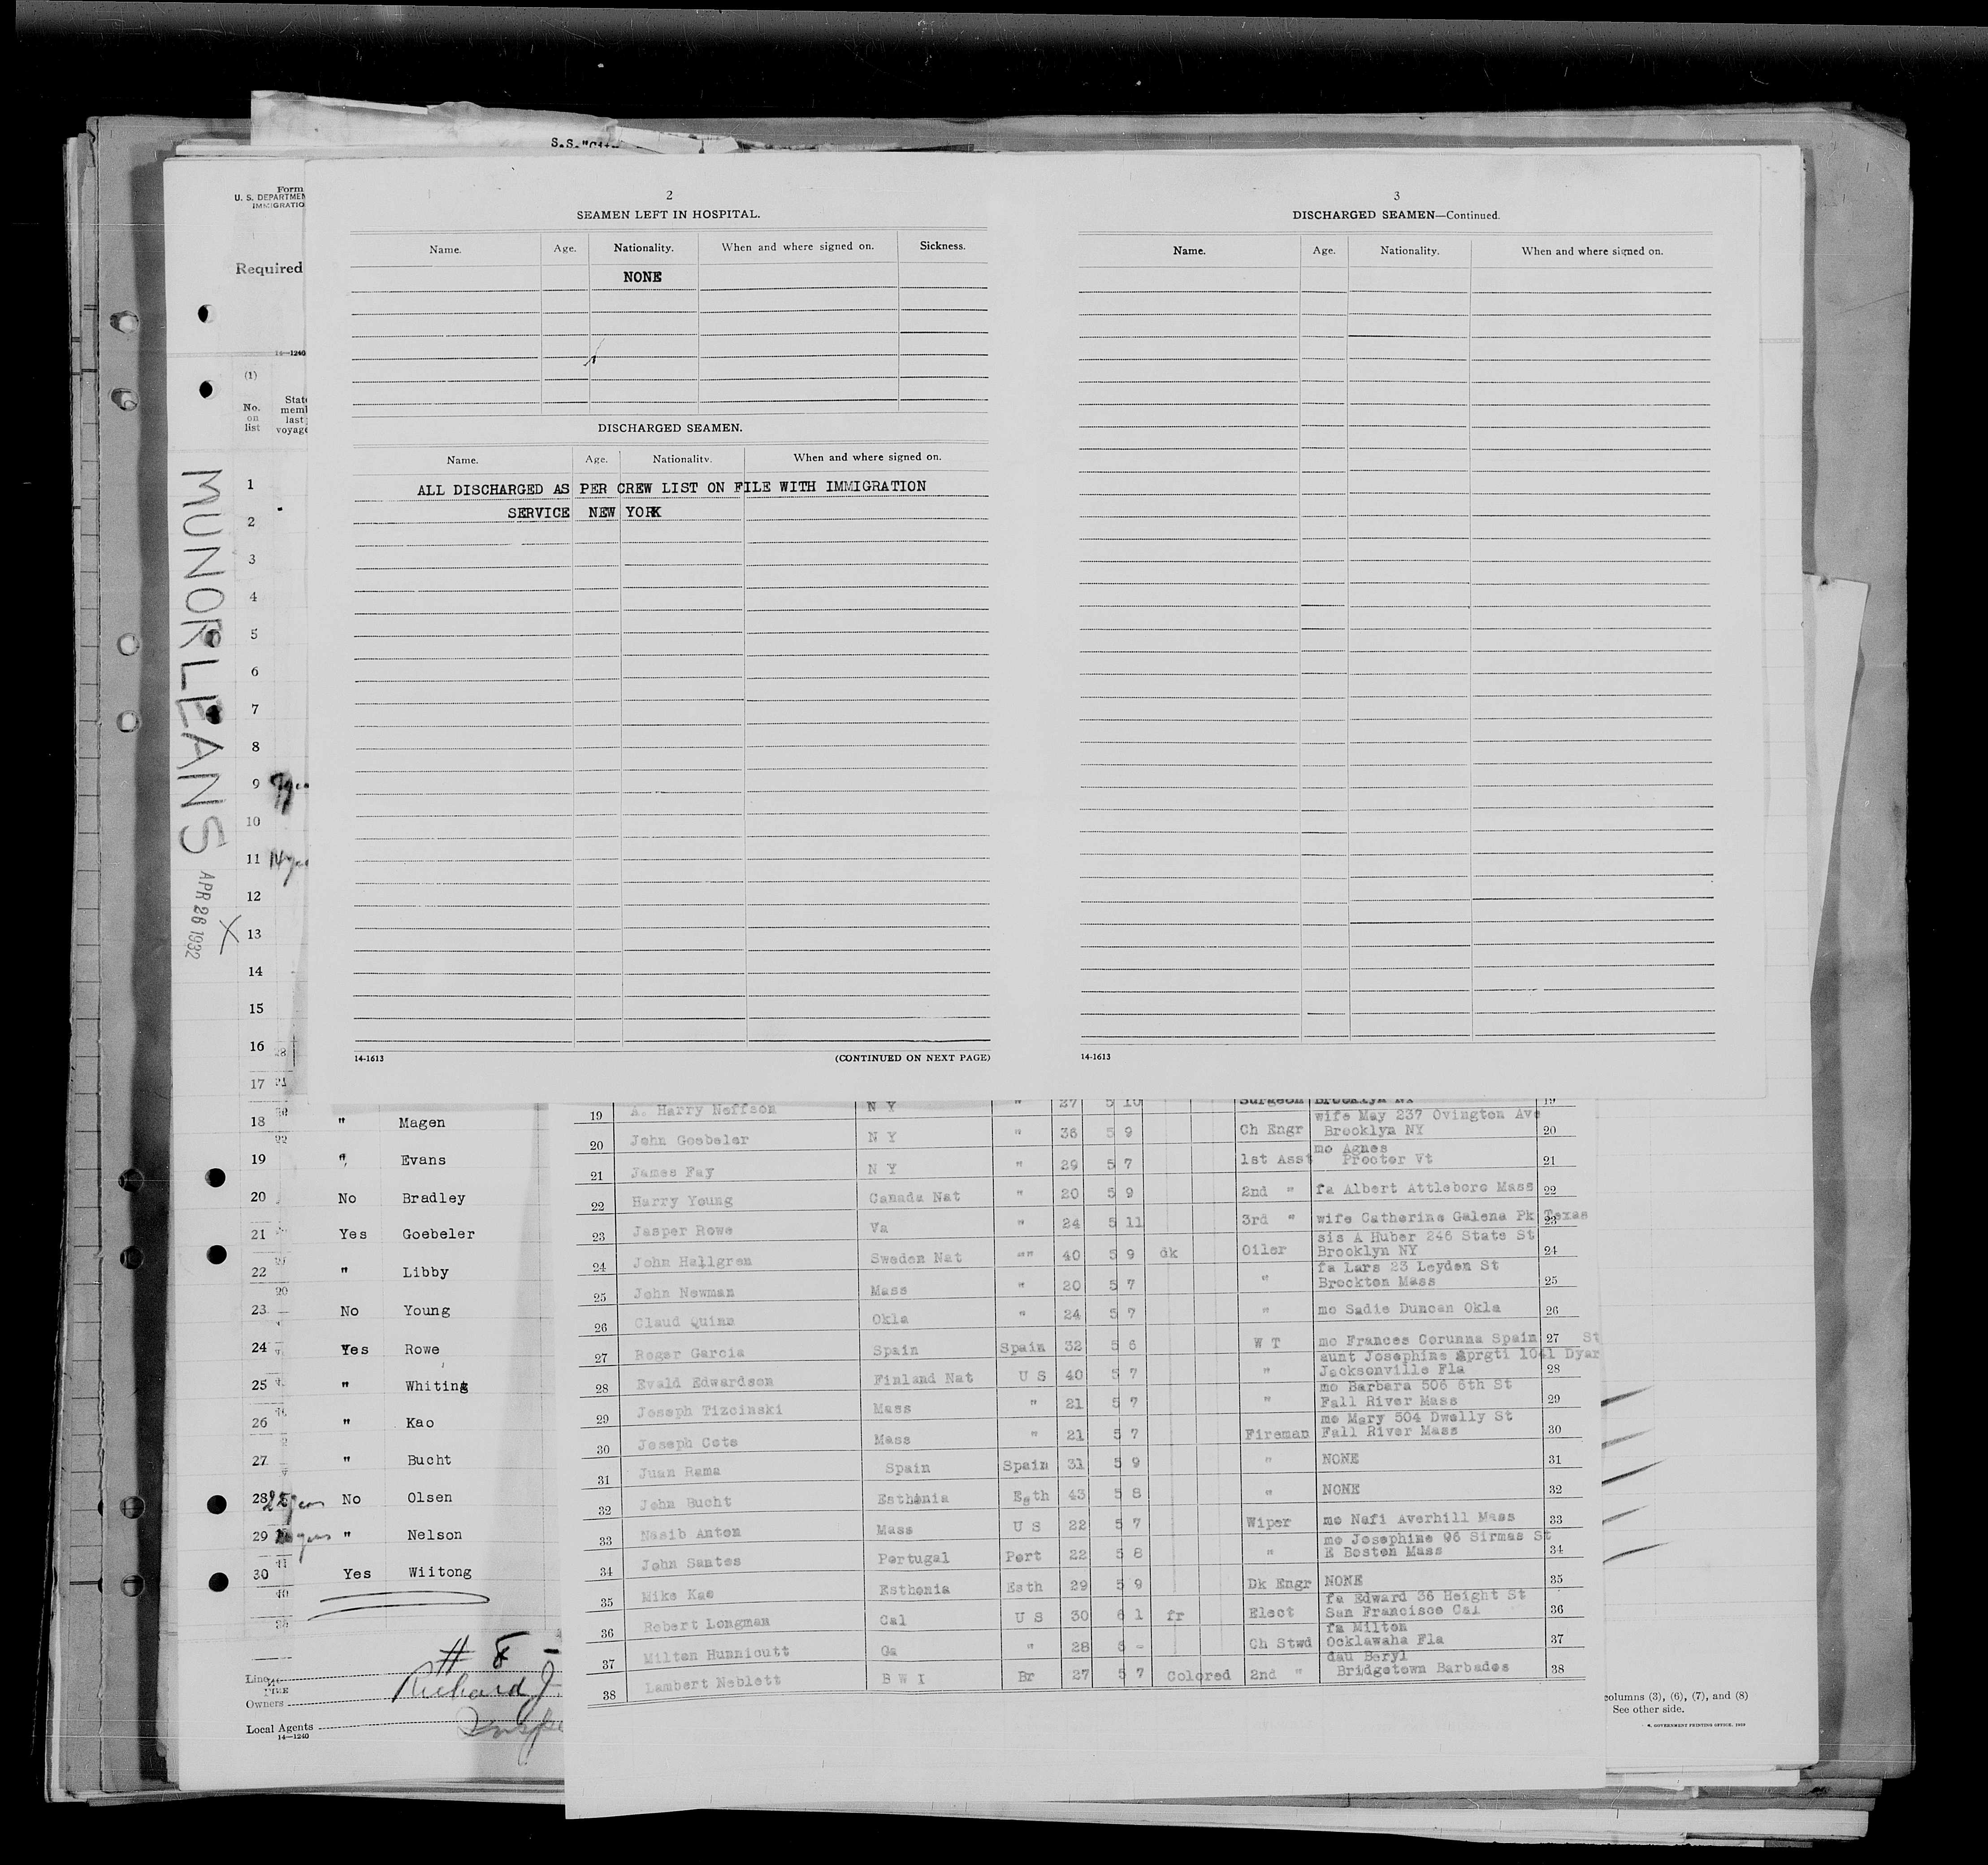 S.S.
Form
U. S. DEPARTMEN
IMMIGRATIO
Required
14—1240
(1)
No. on list
State
memb
last
voyage
MUNORLEANS
APR 26 1932
X
2
SEAMEN LEFT IN HOSPITAL.
Name. Age. Nationality. When and where signed on. Sickness.
NONE
DISCHARGED SEAMEN.
Name. Age. Nationality. When and where signed on.
ALL DISCHARGED AS PER CREW LIST ON FILE WITH IMMIGRATION
SERVICE NEW YORK
14-1613 (CONTINUED ON NEXT PAGE)
3
DISCHARGED SEAMEN—Continued.
Name. Age. Nationality. When and where signed on.
14-1613
1
2
3
4
5
6
7
8
9
10
11
12
13
14
15
16
17
18 " Magen
19 " Evans
20 No Bradley
21 Yes Goebeler
22 " Libby
23 No Young
24 Yes Rowe
25 " Whiting
26 " Kao
27 " Bucht
28 No Olsen
29 " Nelson
30 Yes Wiitong
# 8 -
Line
Richard J.
Owners
Local Agents
14—1240
19 A. Harry Noffson N Y " 27 5 10 Surgeon Brooklyn NY 19
20 John Goebeler N Y " 36 5 9 Ch Engr wife May 237 Ovington Ave Brooklyn NY 20
21 James Fay N Y " 29 5 7 1st Asst mo Agnes Procter Vt 21
22 Harry Young Canada Nat " 20 5 9 2nd " fa Albert Attleboro Mass 22
23 Jasper Rowe Va " 24 5 11 3rd " wife Catherine Galena Pk Texas 23
24 John Hallgren Sweden Nat "" 40 5 9 dk Oiler sis A Huber 246 State St Brooklyn NY 24
25 John Newman Mass " 20 5 7 " fa Lars 23 Leyden St Brockton Mass 25
26 Claud Quinn Okla " 24 5 7 " mo Sadie Duncan Okla 26
27 Roger Garcia Spain Spain 32 5 6 W T mo Frances Corunna Spain 27
28 Evald Edwardson Finland Nat U S 40 5 7 " aunt Josephine Sprgti 1041 Dyar St Jacksonville Fla 28
29 Joseph Tizcinski Mass " 21 5 7 " mo Barbara 506 6th St Fall River Mass 29
30 Joseph Cote Mass " 21 5 7 Fireman mo Mary 504 Dwelly St Fall River Mass 30
31 Juan Rama Spain Spain 31 5 9 " NONE 31
32 John Bucht Esthonia Esth 43 5 8 " NONE 32
33 Nasib Anton Mass U S 22 5 7 Wiper mo Nefi Averhill Mass 33
34 John Santos Portugal Port 22 5 8 " mo Josephine 96 Sirmas St E Boston Mass 34
35 Mike Kao Esthonia Esth 29 5 9 Dk Engr NONE 35
36 Robert Longman Cal U S 30 6 1 fr Elect fa Edward 36 Height St San Francisco Cal 36
37 Milton Hunnicutt Ga " 28 6 - Ch Stwd fa Milton Ocklawaha Fla 37
38 Lambert Neblett B W I Br 27 5 7 Colored 2nd " dau Beryl Bridgetown Barbados 38
columns (3), (6), (7), and (8)
See other side.
GOVERNMENT PRINTING OFFICE